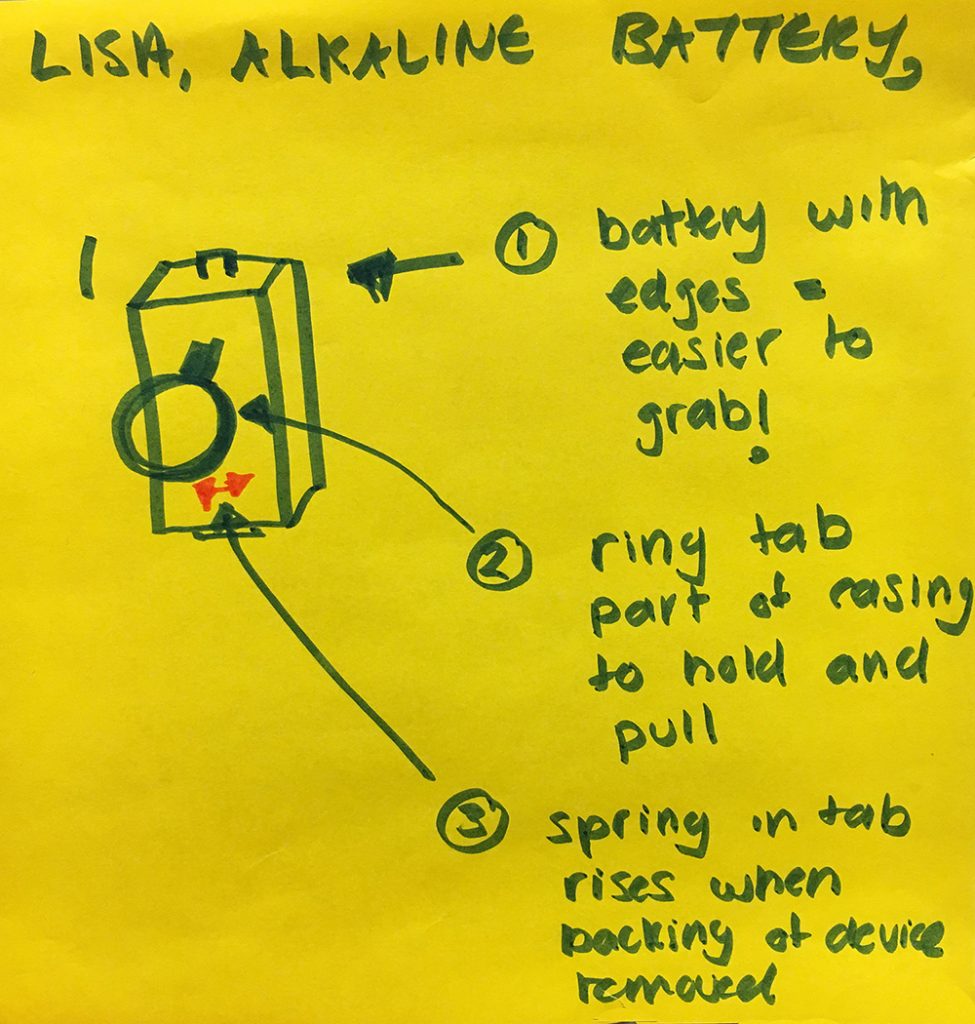 LISA, ALKALINE BATTERY,
① battery with
edges =
easier to
grab!
② ring tab
part of casing
to hold and
pull
③ spring in tab
rises when
backing of device
removed